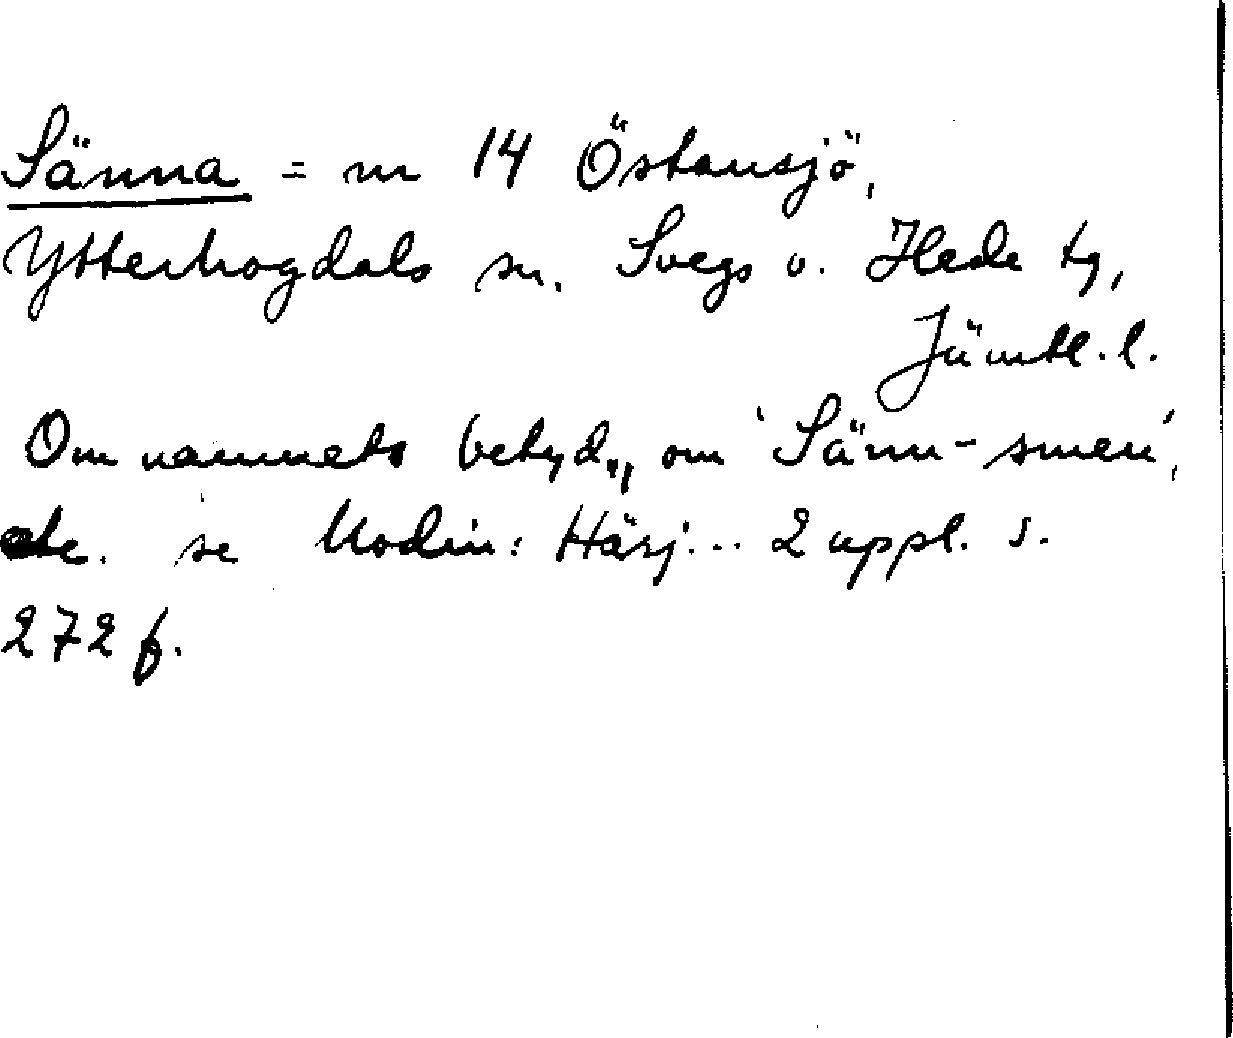 Sänna = nr 14 Östansjö,
Ytterhogdals sn. Svegs o. Hede tg,
Jämtl. l.
Om namnets betyd., om 'Sänn-smen',
etc. se Modin: Härj... 2 uppl. s.
272 f.